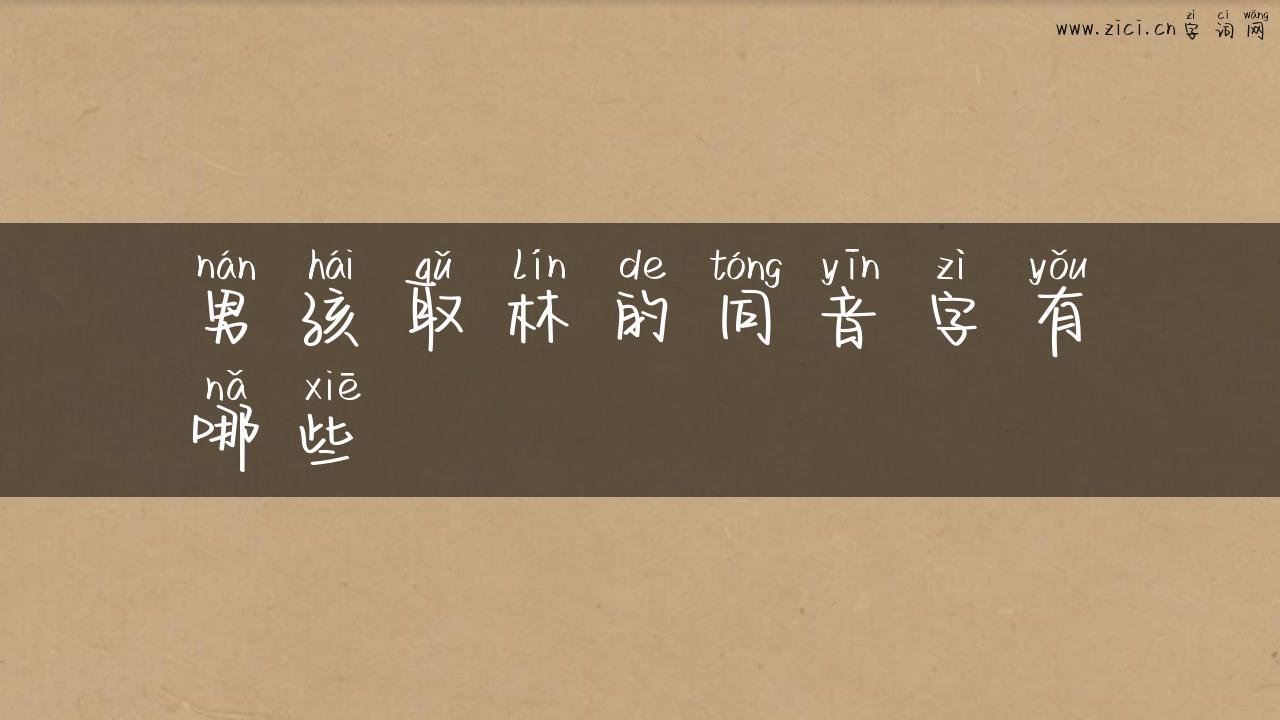 www.zici.cn 字词网
zì cí wǎng
nán hái qǔ lín de tóng yīn zì yǒu
男孩取林的同音字有
nǎ xiē
哪些